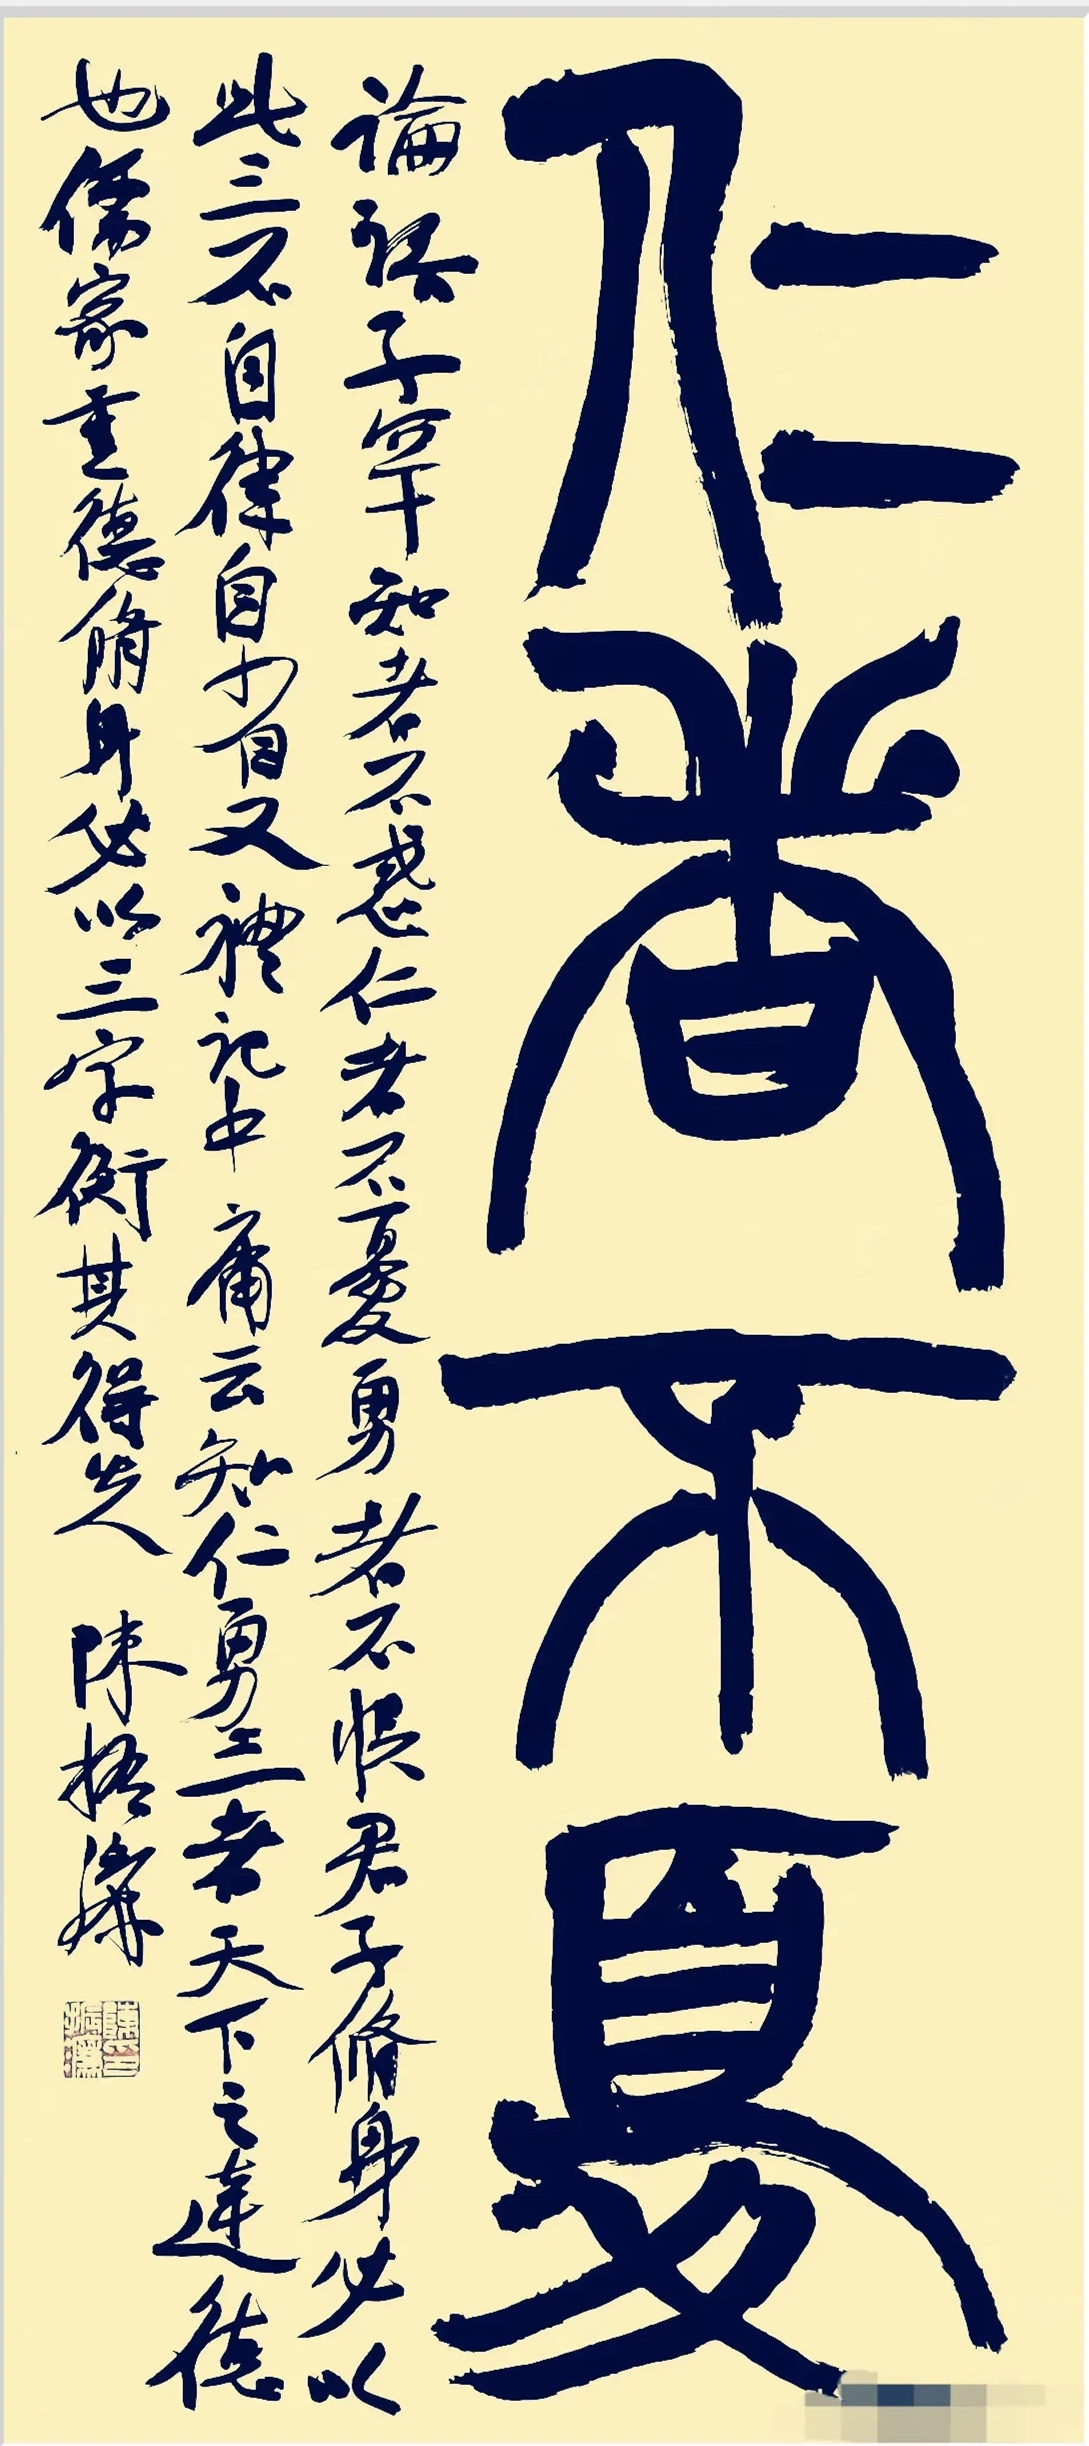 仁者不憂
論語子罕知者不惑仁者不憂勇者不懼君子脩身必以
此三不自律自省又禮記中庸云知仁勇三者天下之達德
也儒家重德脩身必以三字衡其得失 陳振濂